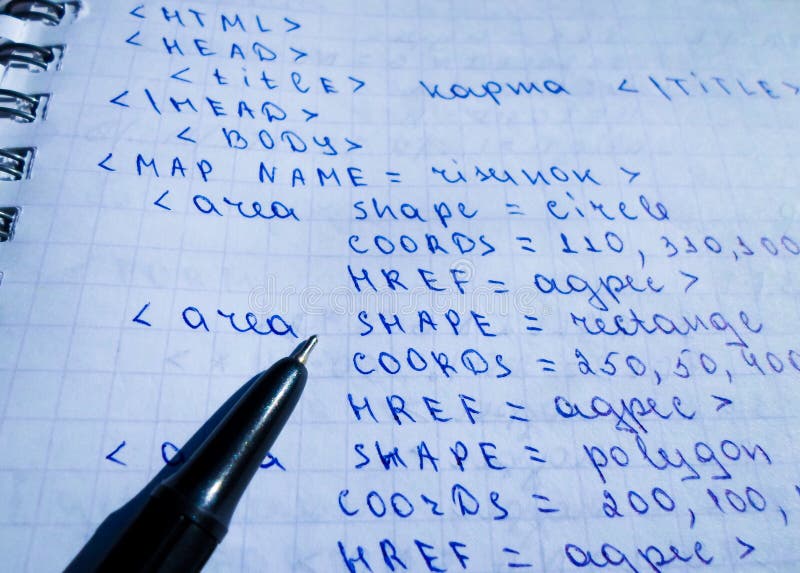 <HTML>
<HEAD>
<titlE> карта <\TiTLE>
<\HEAD>
<BODY>
<MAP NAME = risunok>
<area shape = circle
COORDS = 110, 310, 100
HREF = адрес>
<area SHAPE = rectange
COORDS = 250, 50, 400
HREF = адрес>
< SHAPE = polygon
COOrDS = 200, 100,
HREF = адрес>
dreamstime